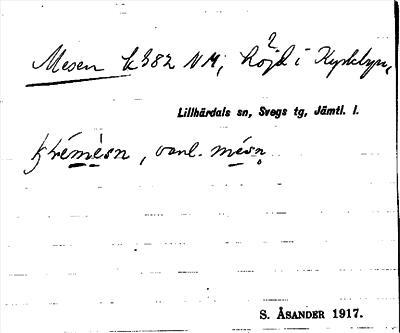 Mesen k382 NM, höjd i Kyrkbyn,
?
Lillhärdals sn, Svegs tg, Jämtl. l.
mésn, vanl. mésn
S. ÅSANDER 1917.